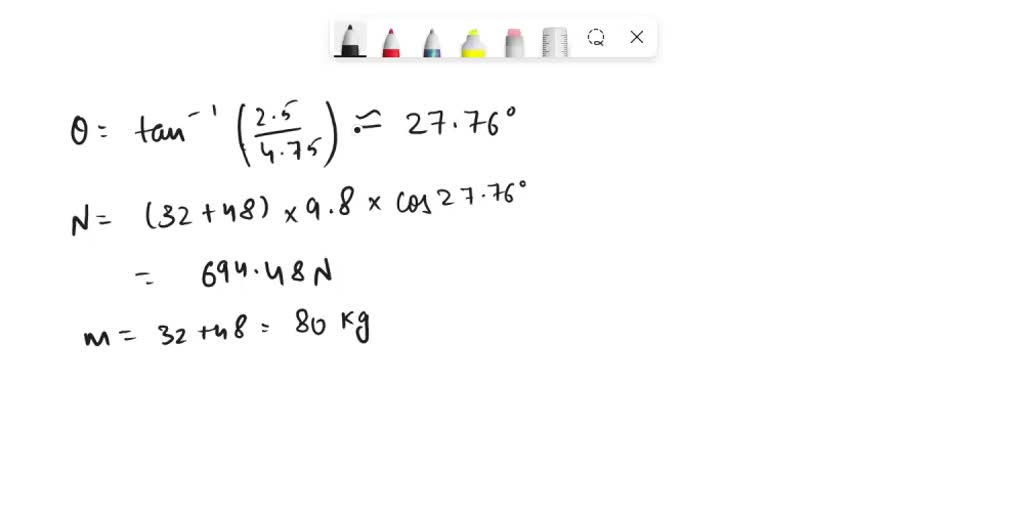 θ = tan⁻¹ (2.5/4.75) ≈ 27.76°
N = (32 + 48) × 9.8 × cos 27.76°
= 694.48 N
m = 32 + 48 = 80 kg